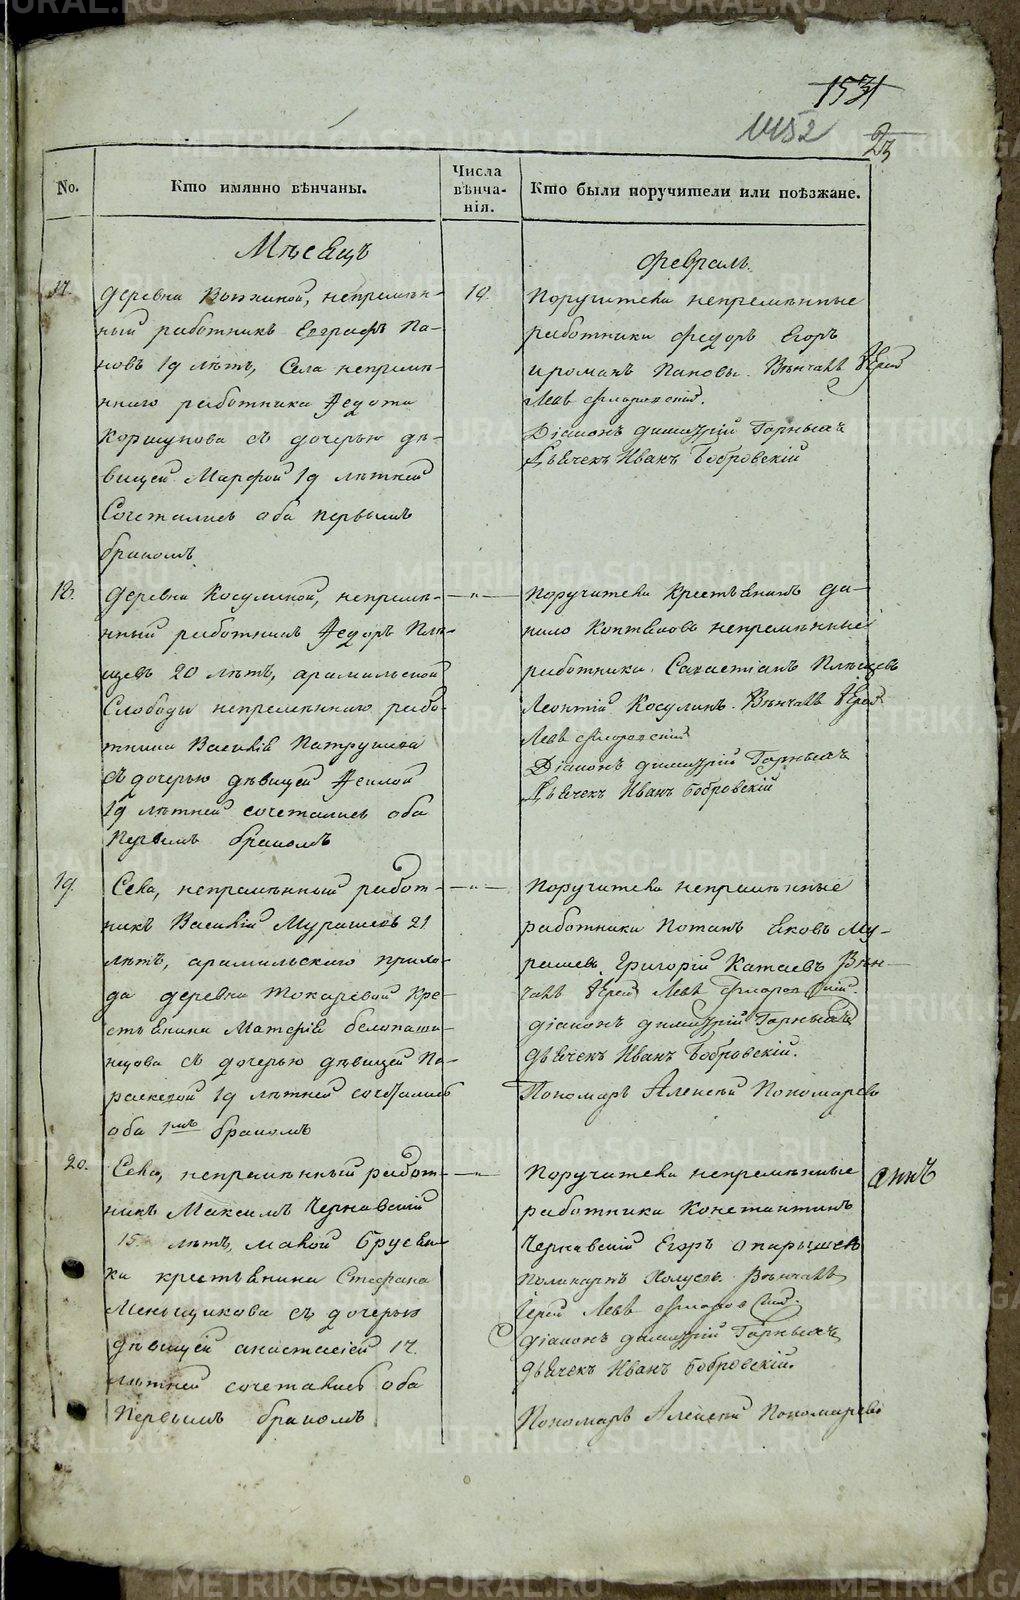 1531
1452
23
No.
Кто имянно вѣнчаны.
Числа вѣнча-
нія.
Кто были поручители или поѣзжане.
Мѣсяцъ
Февраль.
17.
деревни непремѣн-
ный работникъ Евграфъ Па-
новъ 19 лѣтъ, Села непремѣ-
ннаго работника Федота
Коршунова съ дочерью дѣ-
вицей Марфой 19 лѣтней
Сочетались оба первымъ
бракомъ
19.
Поручители непремѣнные
работники Федоръ Егоръ
и романъ Пановы. Вѣнчалъ Іерей
Левъ Флоровскій.
Діаконъ димитрій Горныхъ
Дьячекъ Иванъ Бобровскій
18.
деревни Косулиной, непремѣ-
нный работникъ Федоръ Плѣ-
щевъ 20 лѣтъ, арамильской
Слободы непремѣннаго рабо-
тника Василія Патрушева
съ дочерью дѣвицей Феклой
19 лѣтней сочетались оба
первымъ бракомъ
—"—
Поручители Крестьянинъ да-
нило Коптяковъ непремѣнные
работники Савастіанъ Плѣщевъ
Леонтій Косулинъ. Вѣнчалъ Іерей
Левъ Флоровскій
Діаконъ димитрій Горныхъ
Дьячекъ Иванъ Бобровскій
19.
Села, непремѣнный работ-
никъ Василій Мурашевъ 21
лѣтъ, арамильскаго прихо-
да деревни токаревой кре-
стьянина
съ дочерью дѣвицей Па-
раскевой 19 лѣтней сочетались
оба 1мъ бракомъ
—"—
Поручители непремѣнные
работники Потапъ Яковъ Му-
рашевъ Григорій Катаевъ Вѣн-
чалъ Іерей Левъ Флоровскій.
діаконъ димитрій Горныхъ
дьячекъ Иванъ Бобровскій.
Пономарь Алексѣй Пономаревъ
20.
Села, непремѣнный работ-
никъ Максимъ Чернавскій
лѣтъ, малой Брусян-
ки крестьянина Стефана
Меньщикова съ дочерью
дѣвицей анастасіей 17.
лѣтней сочетались оба
Первымъ бракомъ
—"—
Поручители непремѣнные
работники Константинъ
Чернавскій Егоръ
Поликарпъ Вѣнчалъ
Іерей Левъ Флоровскій.
діаконъ димитрій Горныхъ
дьячекъ Иванъ Бобровскій.
Пономарь Алексѣй Пономаревъ
METRIKI.GASO-URAL.RU